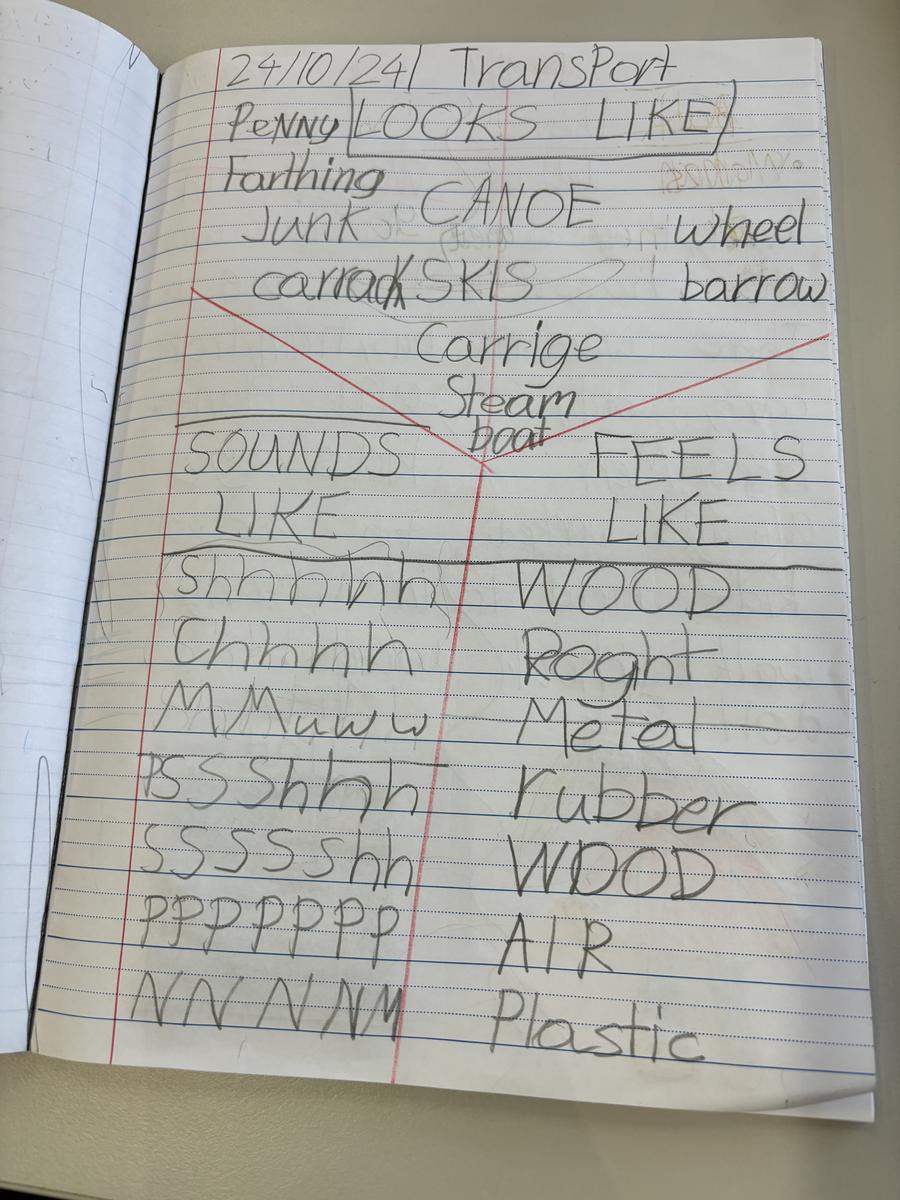 24/10/24 Transport
Penny LOOKS LIKE
Farthing CANOE
Junk wheel
carrack SKIS barrow
Carrige
Steam
boat
SOUNDS FEELS
LIKE LIKE
Shhhhh WOOD
Chhhh Roght
MMuww Metal
PSSShhh rubber
SSSSShh WOOD
PPPPPPP AIR
NNNNM Plastic